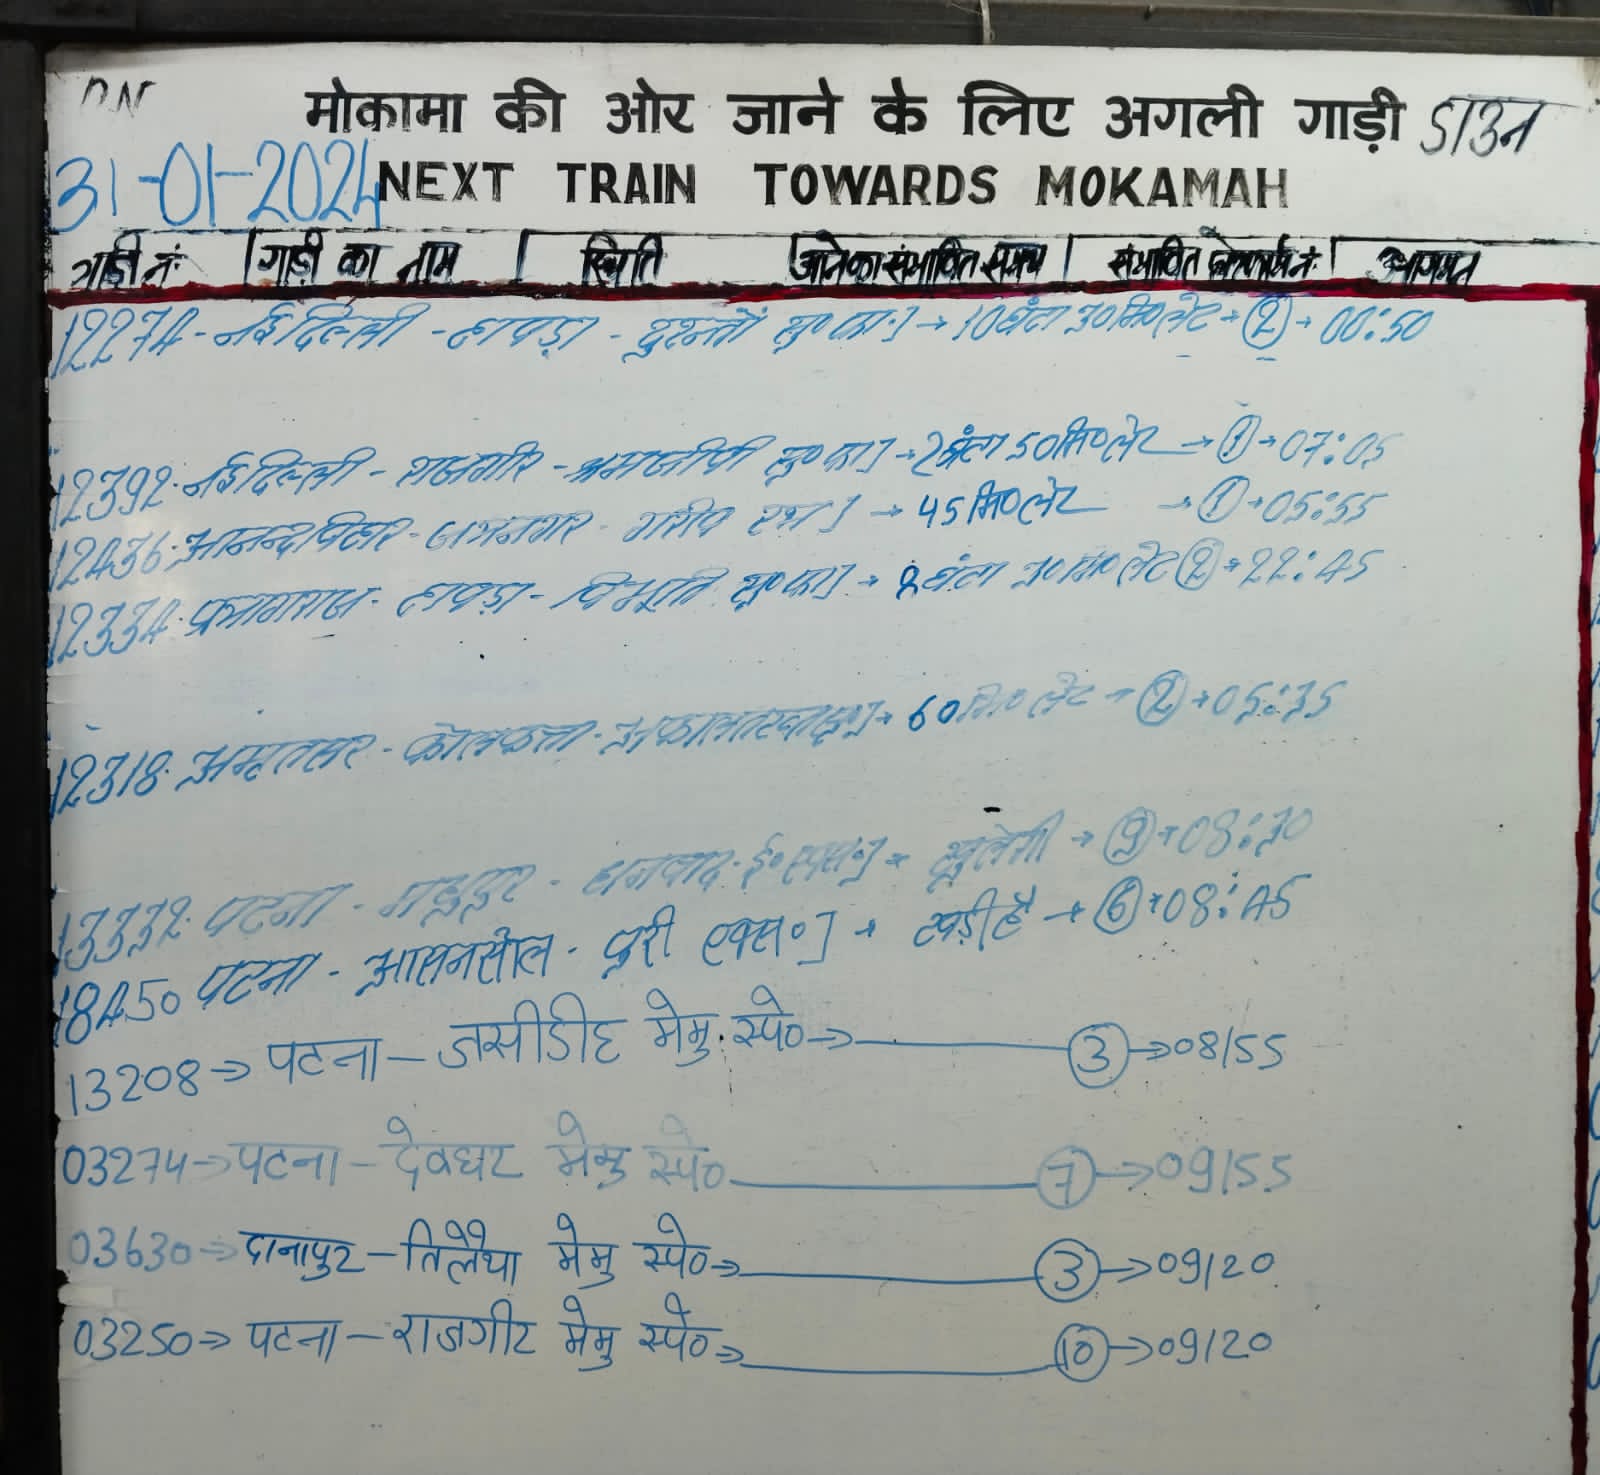 DN
मोकामा की ओर जाने के लिए अगली गाड़ी डाउन
31-01-2024 NEXT TRAIN TOWARDS MOKAMAH
गाड़ी नं॰ | गाड़ी का नाम | स्थिति | आने का संभावित समय | संभावित प्लेटफार्म नं॰ | आगमन
12274 - नई दिल्ली - हावड़ा - दुरन्तो सु०फा०] → 10 घंटा 30 मि० लेट → 2 → 00:50
12392 - नई दिल्ली - राजगीर - श्रमजीवी सु०फा०] → 2 घंटा 50 मि० लेट → 1 → 07:05
12436 - आनन्द विहार - जयनगर - गरीब रथ] → 45 मि० लेट → 1 → 05:55
12334 - प्रयागराज - हावड़ा - विभूति सु०फा०] → 8 घंटा 30 मि० लेट 2 → 22:45
12318 - अमृतसर - कोलकत्ता - अकालतख्त → 60 मि० लेट → 2 → 05:35
13332 - पटना - धनबाद - ई० एक्स०] → खुलेगी → 9 → 08:30
18450 पटना - आसनसोल - पुरी एक्स०] → खड़ी है → 6 → 08:45
13208 → पटना – जसीडीह मेमु. स्पे० → 3 → 08/55
03274 → पटना – देवघर मेमु स्पे० 7 → 09/55
03630 → दानापुर – तिलैया मेमु स्पे० → 3 → 09/20
03250 → पटना – राजगीर मेमु स्पे० → 10 → 09/20